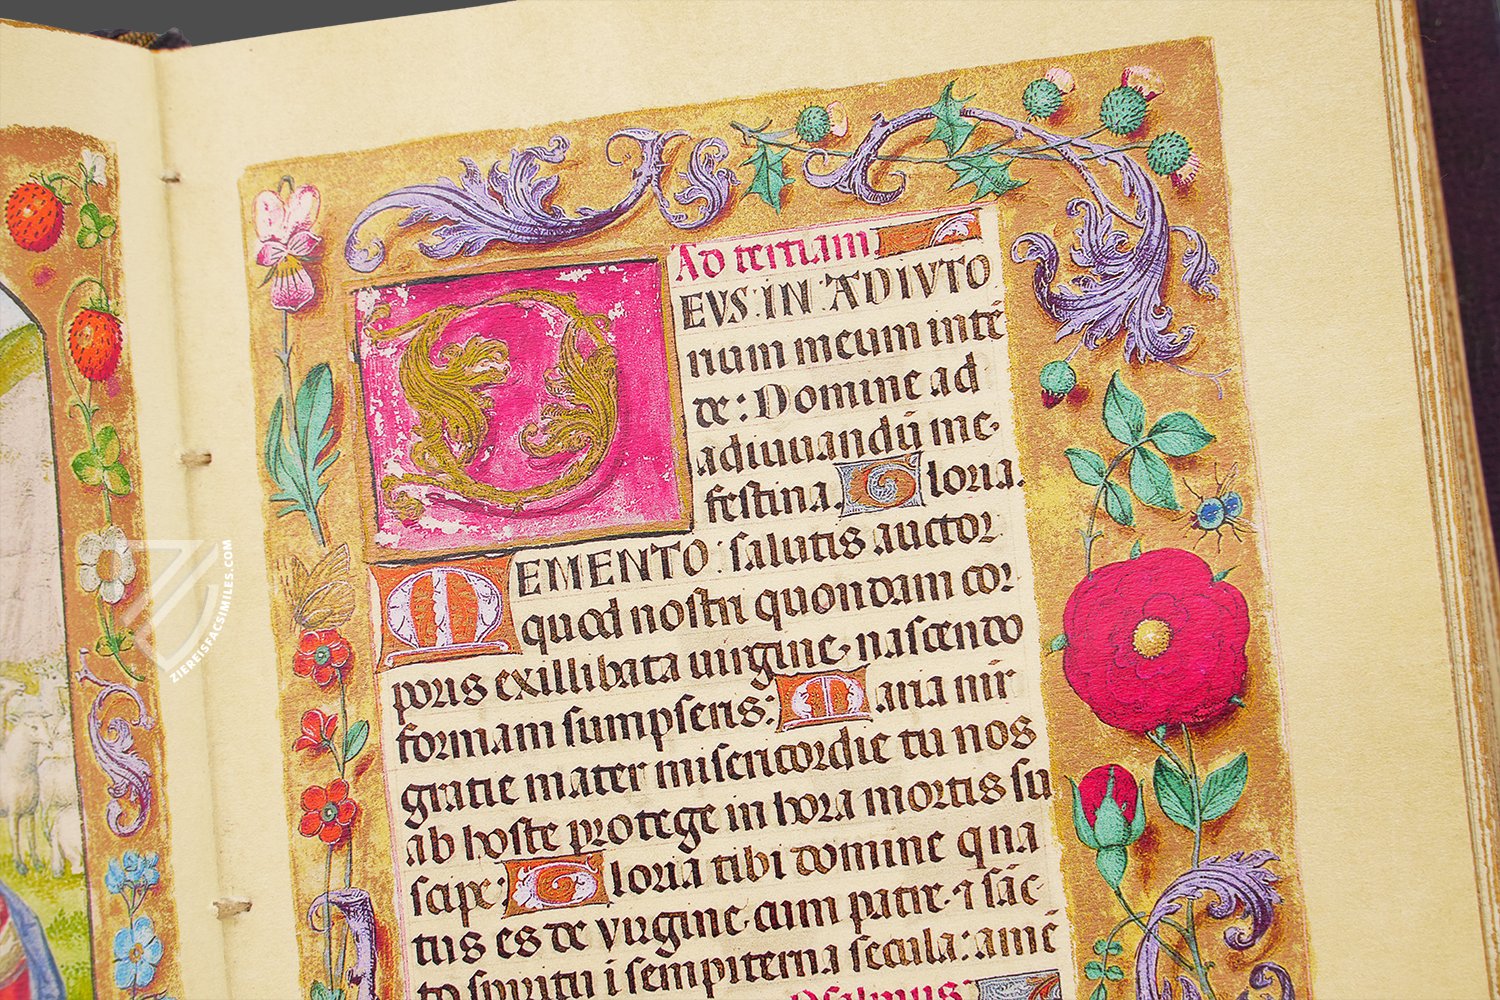 Ad tertiam
DEVS IN ADIVTO
rium meum intē
de: Domine ad
adiuuandū me
festina. Gloria.
MEMENTO salutis auctor
quod nostri quondam cor
poris ex illibata uirgine nascendo
formam sumpseris: Maria mir
gratie mater misericordie tu nos
ab hoste protege in hora mortis su
scipe: Gloria tibi domine qui
tus es de virgine cum patre ⁊ sāc
to spiritu i sempiterna secula: amē
Psalmus
ZIEREISFACSIMILES.COM